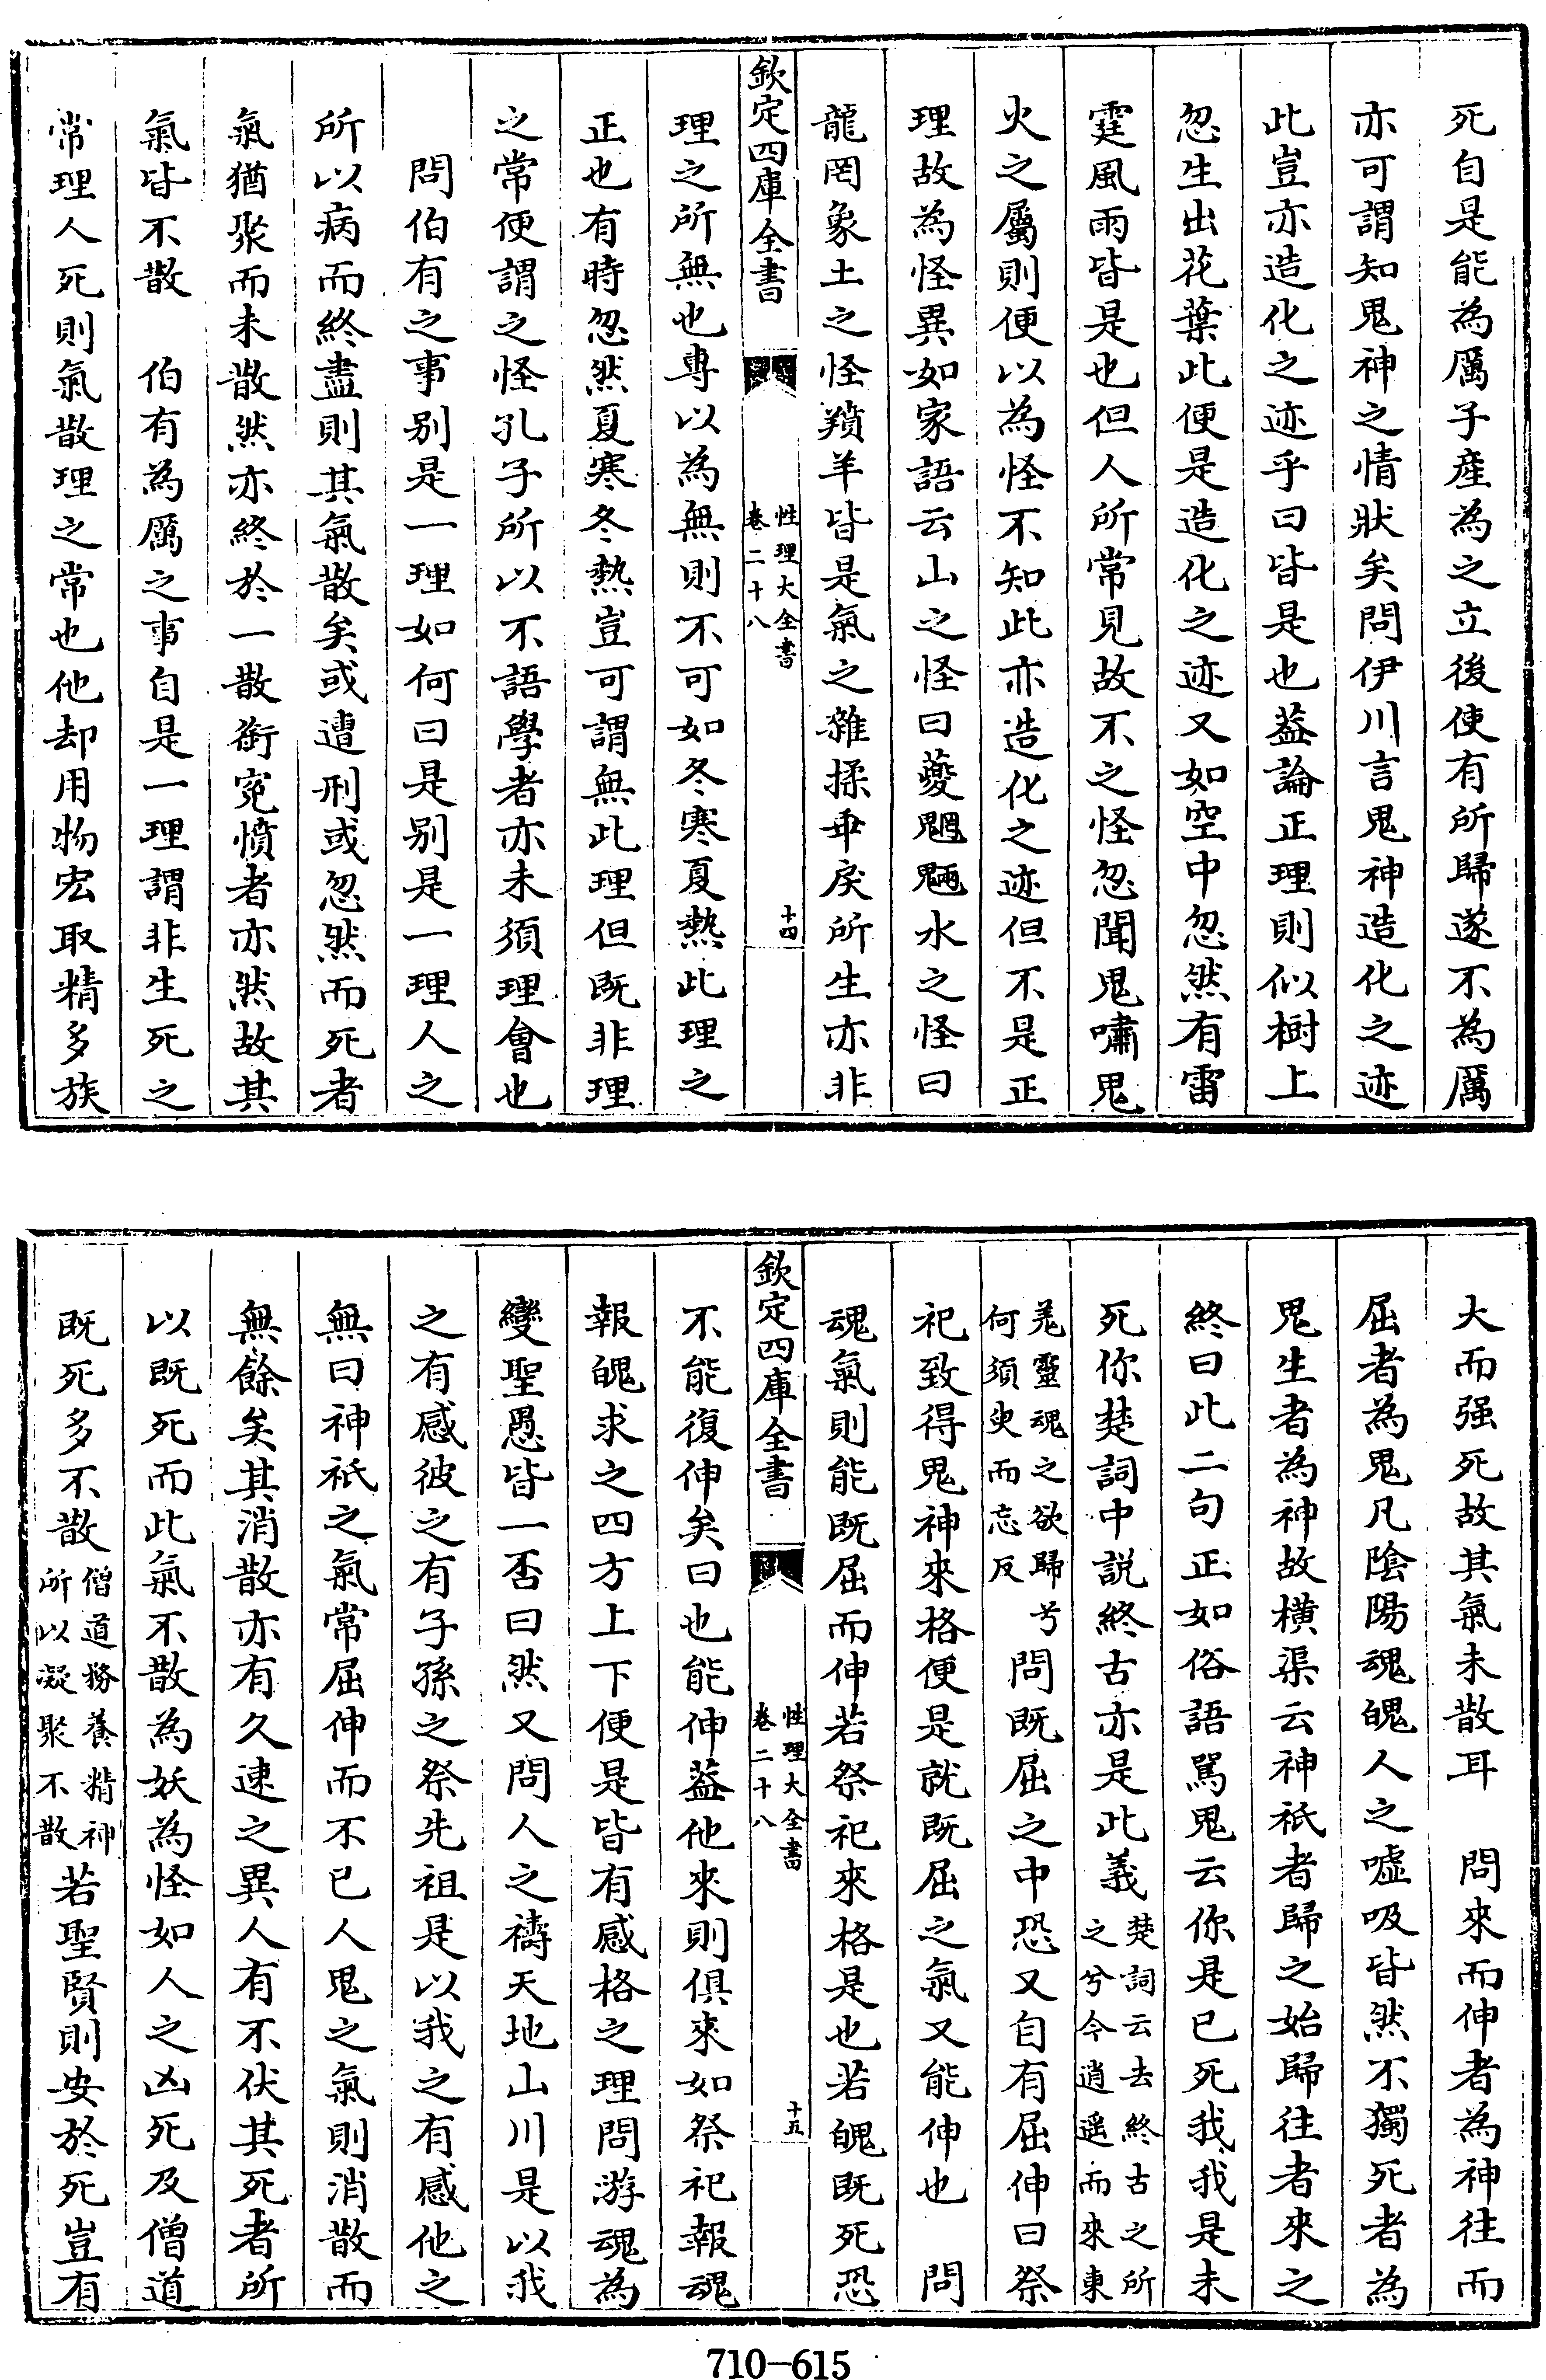 死自是能為厲子產為之立後使有所歸遂不為厲
亦可謂知鬼神之情狀矣問伊川言鬼神造化之迹
此豈亦造化之迹乎曰皆是也葢論正理則似樹上
忽生出花葉此便是造化之迹又如空中忽然有雷
霆風雨皆是也但人所常見故不之怪忽聞鬼嘯鬼
火之屬則便以為怪不知此亦造化之迹但不是正
理故為怪異如家語云山之怪曰夔魍魎水之怪曰
龍罔象土之怪羵羊皆是氣之雜揉乖戾所生亦非
欽定四庫全書
性理大全書
卷二十八
十四
理之所無也專以為無則不可如冬寒夏熱此理之
正也有時忽然夏寒冬熱豈可謂無此理但既非理
之常便謂之怪孔子所以不語學者亦未須理會也
問伯有之事别是一理如何曰是别是一理人之
所以病而終盡則其氣散矣或遭刑或忽然而死者
氣猶聚而未散然亦終於一散銜寃憤者亦然故其
氣皆不散　伯有為厲之事自是一理謂非生死之
常理人死則氣散理之常也他却用物宏取精多族
大而强死故其氣未散耳　問來而伸者為神往而
屈者為鬼凡陰陽魂魄人之噓吸皆然不獨死者為
鬼生者為神故横渠云神祇者歸之始歸往者來之
終曰此二句正如俗語罵鬼云你是已死我我是未
死你楚詞中説終古亦是此義楚詞云去終古之所
之兮今逍遥而來東
羌靈魂之欲歸兮
何須臾而忘反　問既屈之中恐又自有屈伸曰祭
祀致得鬼神來格便是就既屈之氣又能伸也　問
魂氣則能既屈而伸若祭祀來格是也若魄既死恐
欽定四庫全書
性理大全書
卷二十八
十五
不能復伸矣曰也能伸葢他來則俱來如祭祀報魂
報魄求之四方上下便是皆有感格之理問游魂為
變聖愚皆一否曰然又問人之禱天地山川是以我
之有感彼之有子孫之祭先祖是以我之有感他之
無曰神祇之氣常屈伸而不已人鬼之氣則消散而
無餘矣其消散亦有久速之異人有不伏其死者所
以既死而此氣不散為妖為怪如人之凶死及僧道
既死多不散僧道務養精神
所以凝聚不散若聖賢則安於死豈有
710-615